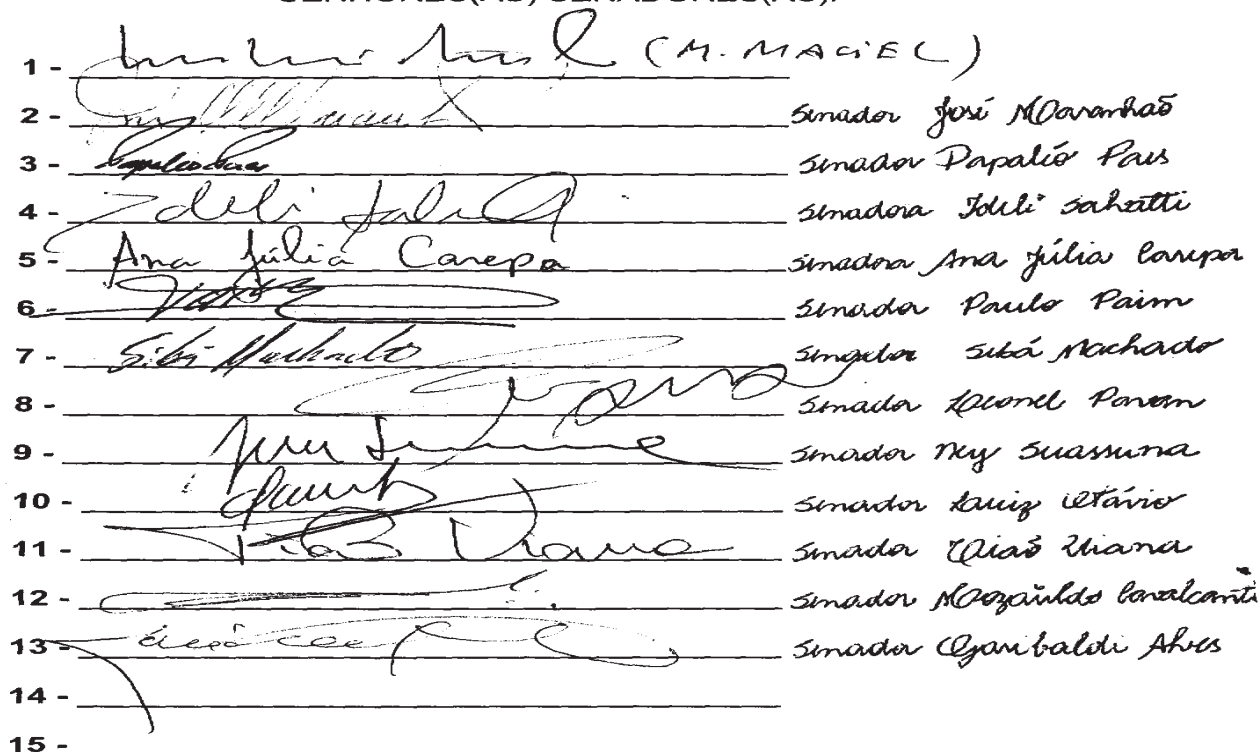 SENHORES(AS) SENADORES(AS):
1 - (M. MACIEL)
2 - Senador José Maranhão
3 - Senador Papaléo Paes
4 - Ideli Salvatti Senadora Ideli Salvatti
5 - Ana Júlia Carepa Senadora Ana Júlia Carepa
6 - Senador Paulo Paim
7 - Sibá Machado Senador Sibá Machado
8 - Senador Leonel Pavan
9 - Senador Ney Suassuna
10 - Senador Luiz Otávio
11 - Tião Viana Senador Tião Viana
12 - Senador Mozarildo Cavalcanti
13 - Senador Garibaldi Alves
14 -
15 -